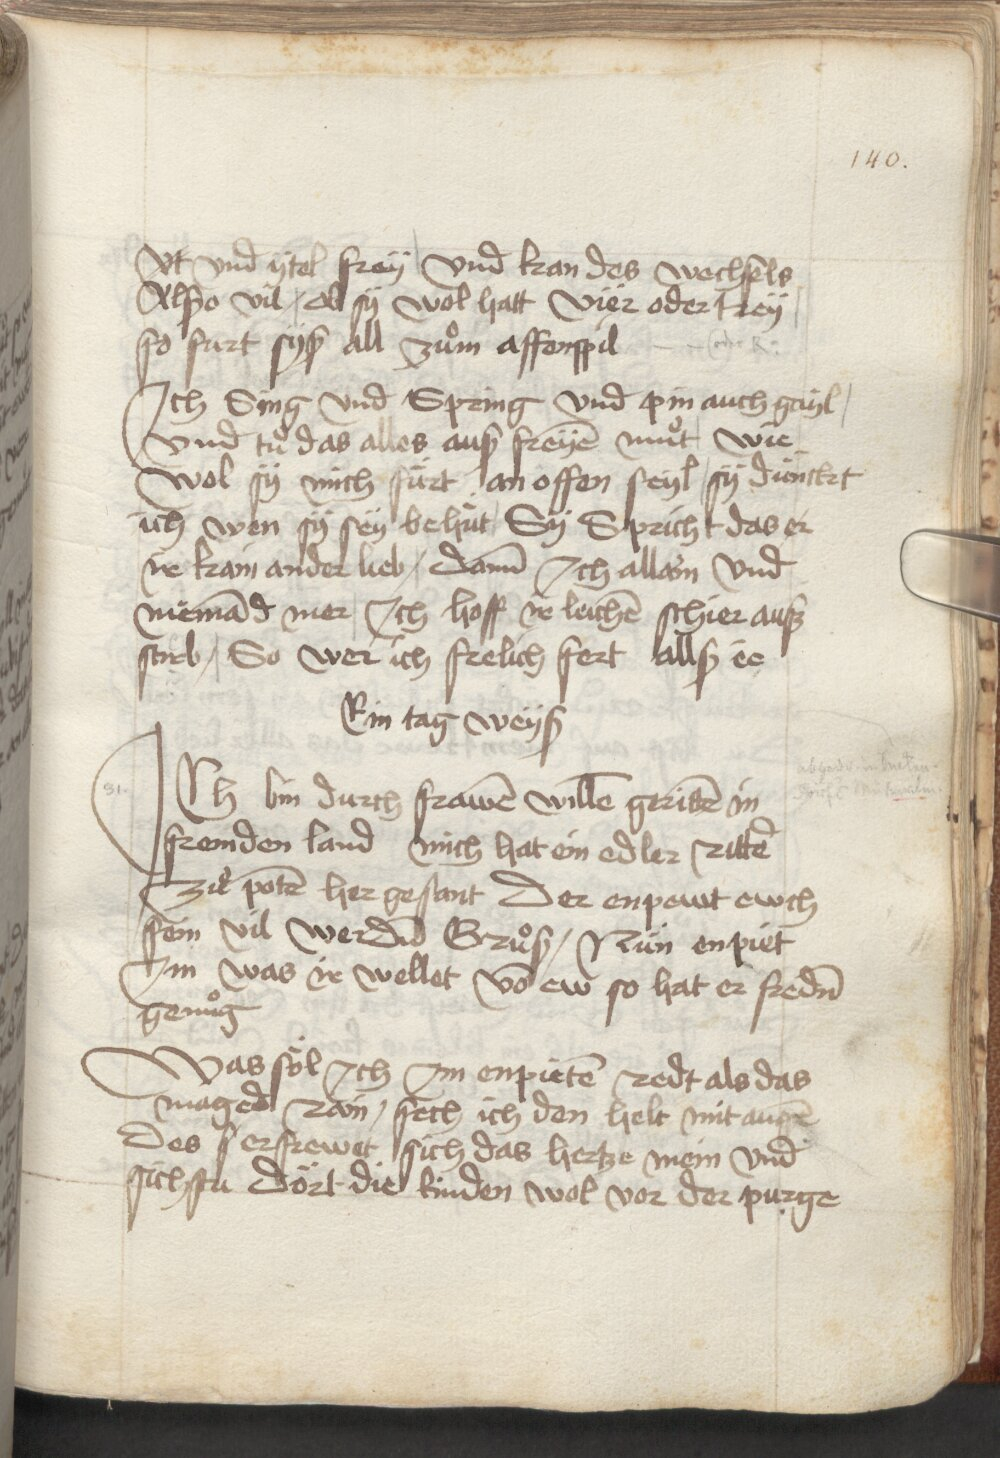 140.
Vt vnd ytel freÿ vnd kan des wechsels
Also vil / ob sÿ wol hatt vier oder treÿ /
so furt sÿß all zuͦm affenspil
Ich Sing vnd Spring vnd pin auch gayl /
vnd tuͦ das alles auß freyē muͦt wie
wol sÿ mich fürt an offen seyl / sÿ dünckt
ich wen sÿ seÿ behüt Sÿ Spricht das er
ir kain ander lieb / dann Ich allain vnd
niemād mer / Ich hoff ir leichē schier auß
stieb / So wer ich frelich fert allß ee
Ein tag weÿß
31.
ICh bin durch frawē willē geritē in
fremden land mich hat ein edler rittē
zü potē her gesant Der enpewt ewch
sein vil werdñ Gruͦß / Nün enpiet
Im was ir wellet vō ew so hat er fredñ
genuͦg
Was söl Ich Im enpietē redt als das
maged rain / sech ich den helt mit augē
Des erfrewet sich das hertze mein vnd
sichstu dört die linden wol vor der purge